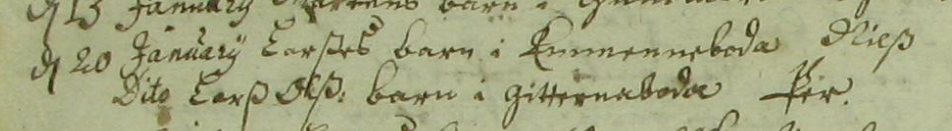 d 13 January Mårtens barn i
d 20 January Larses barn i Kummenneboda Nielß
Dito Larß Olß: barn i Gitternaboda Per.